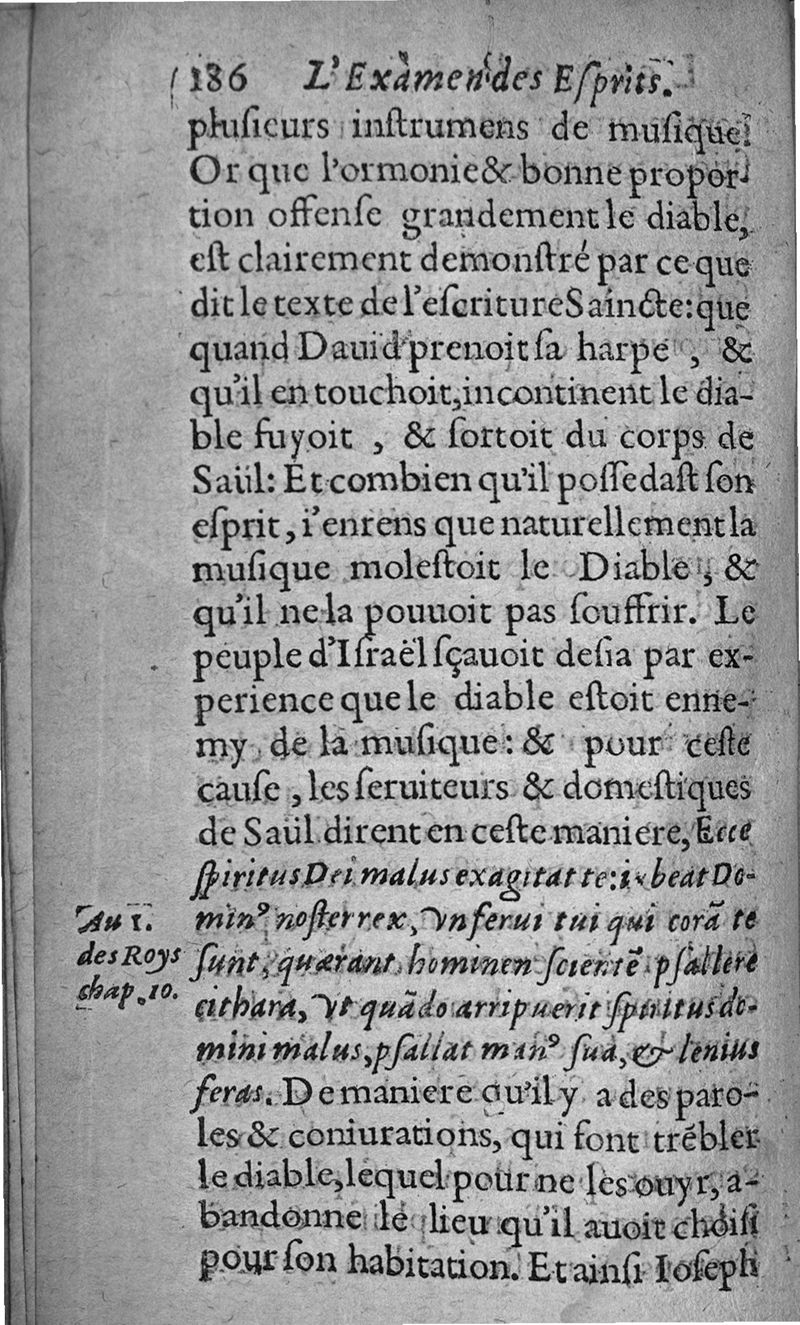 186 L'Examen des Eſprits.
pluſieurs inſtrumens de muſique.
Or que l'ormonie & bonne propor-
tion offenſe grandement le diable,
eſt clairement demonſtré par ce que
dit le texte de l'eſcriture Saincte: que
quand Dauid prenoit ſa harpe , &
qu'il en touchoit, incontinent le dia-
ble fuyoit , & ſortoit du corps de
Saül: Et combien qu'il poſſedaſt ſon
eſprit, i'enrens que naturellement la
muſique moleſtoit le Diable , &
qu'il ne la pouuoit pas ſouffrir. Le
peuple d'Iſraël ſçauoit deſia par ex-
perience que le diable eſtoit enne-
my de la muſique : & pour ceſte
cauſe , les ſeruiteurs & domeſtiques
de Saül dirent en ceſte maniere, Ecce
ſpiritus Dei malus exagitat te: iubeat Do-
minꝰ noſter rex, vnſerui tui qui corã te
ſunt, quærant hominen ſcientẽ pſallere
cithara, vt quãdo arripuerit ſpiritus do-
mini malus, pſallat manꝰ ſua, & lenius
feras. De maniere qu'il y a des paro-
les & coniurations, qui font trẽbler
le diable, lequel pour ne les ouyr, a-
bandonne le lieu qu'il auoit choiſi
pour ſon habitation. Et ainſi Ioſeph
Au 1.
des Roys
chap. 10.